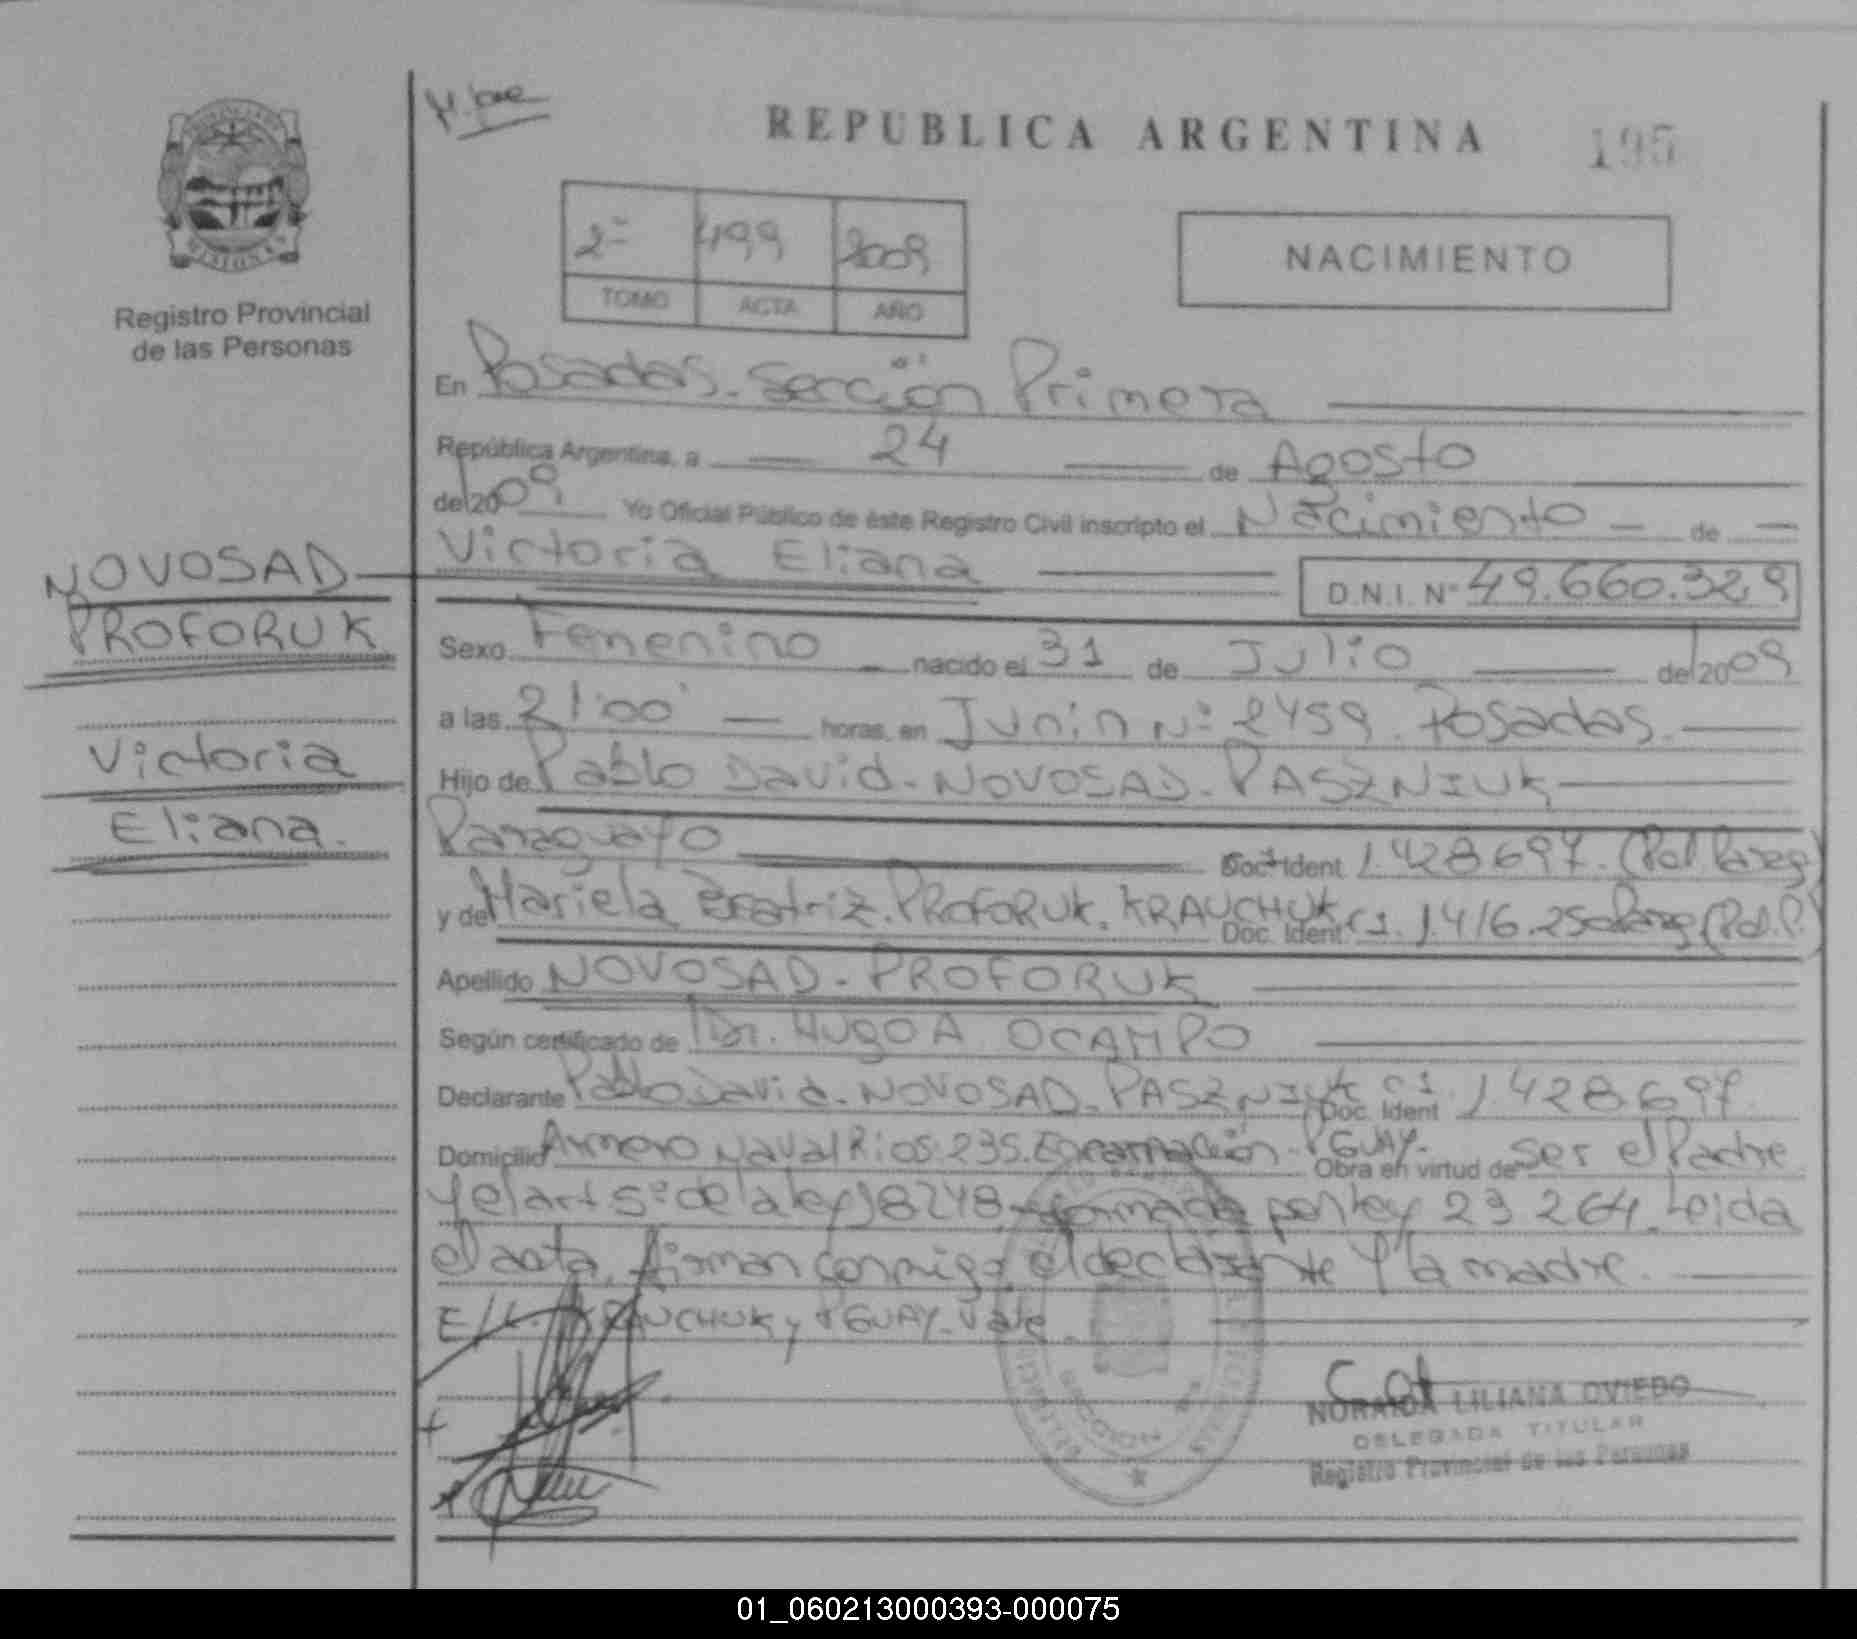 REPUBLICA ARGENTINA
195
2º 499 2009
TOMO ACTA AÑO
NACIMIENTO
Registro Provincial
de las Personas
En Posadas. Sección Primera
República Argentina, a 24 de Agosto
de 2009 Yo Oficial Público de éste Registro Civil inscripto el Nacimiento de
Victoria Eliana D.N.I. Nº 49.660.329
NOVOSAD
PROFORUK
Victoria
Eliana.
Sexo Femenino nacido el 31 de Julio de 2009
a las 21:00 horas, en Junín Nº 2459. Posadas.
Hijo de Pablo David - NOVOSAD - PASZNIUK
Paraguayo Doc. Ident 1.428697. (Pol. Parag)
y de Mariela Beatriz. PROFORUK. KRAUCHUK Doc. Ident C1. 1.416.250 Parag (Pol. P.)
Apellido NOVOSAD - PROFORUK
Según certificado de Dr. HUGO A OCAMPO
Declarante Pablo David - NOVOSAD - PASZNIUK Doc. Ident C1 1428697
Domicilio Naval Rios. 235. Encarnación - PGUAY. Obra en virtud de Ser el Padre
y el art 5º de la ley 18248 por ley 23 264. Leida
el acta, firman conmigo el declarante y la madre.
E/L. KRAUCHUK y PGUAY. Vale.
NORAIDA LILIANA OVIEDO
DELEGADA TITULAR
Registro Provincial de las Personas
01_060213000393-000075